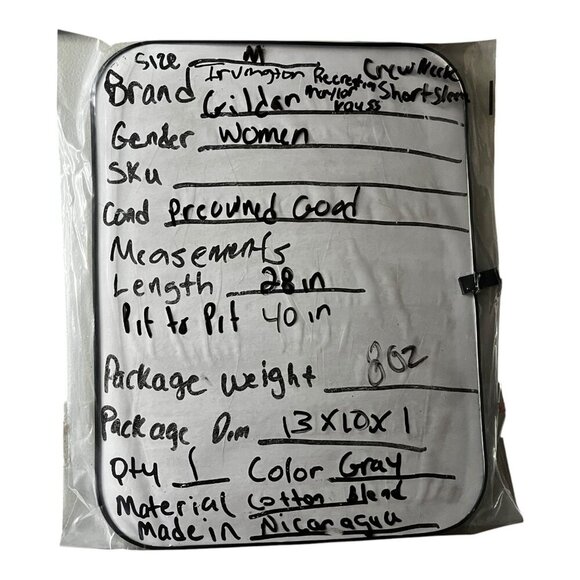 Size M
Irvington Recreation Crew Neck
Brand Gildan Short Sleeve
Gender Women
SKU
Cond Preowned Good
Measements
Length 28 in
Pit to Pit 40 in
Package weight 8oz
Package Dim 13x10x1
Qty 1 Color Gray
Material Cotton Blend
Made in Nicaragua